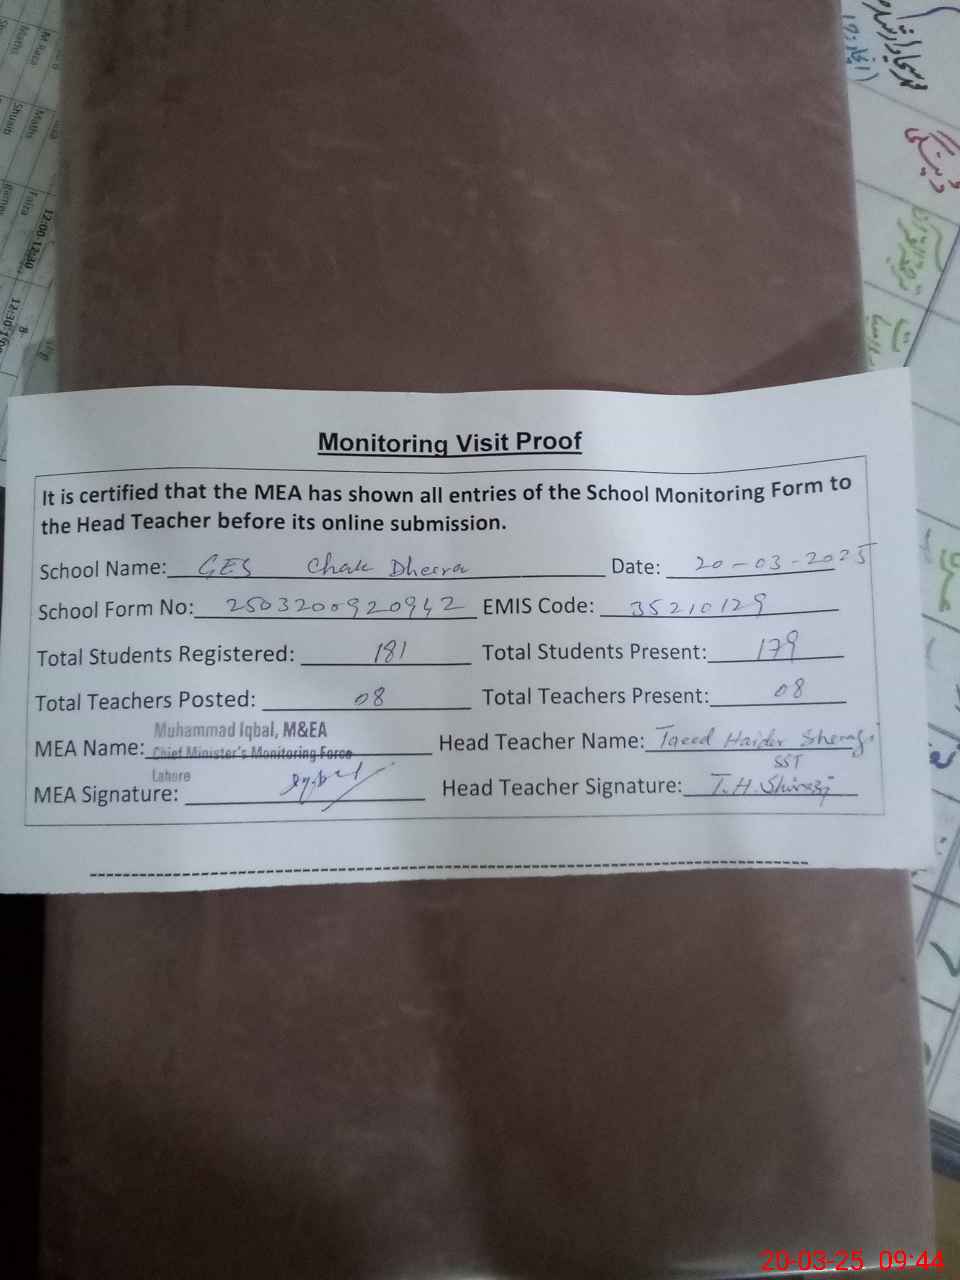 Monitoring Visit Proof
It is certified that the MEA has shown all entries of the School Monitoring Form to
the Head Teacher before its online submission.
School Name: GES Chak Dheera Date: 20-03-2025
School Form No: 2503200920942 EMIS Code: 35210129
Total Students Registered: 181 Total Students Present: 179
Total Teachers Posted: 08 Total Teachers Present: 08
Muhammad Iqbal, M&EA
MEA Name: Chief Minister's Monitoring Force Head Teacher Name: Taeed Haider Sherazi
Lahore SST
MEA Signature: Head Teacher Signature: T.H.Shirazi
Maths
Shuaib
Maths
Faiza
12:00 12:30
8
20-03-25 09:44